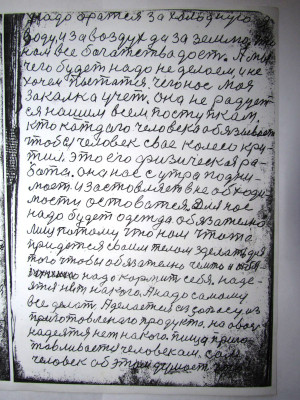 надо братся за холодную
воду и за воздух да за землю
ком все богатейродость. А мы
чего будет надо не делаем, и не
хочем пытатся, чего нос моя
закалка учет. она не радует-
ся нашим всем поступкам,
кто когдаго человека обязывает
чтобы человек свае колесо кру-
тил. Это его физическая ра-
бота. она нас с утра подни-
мает и застовляет в необходи-
мости остоватся. Для нас
надо будет одежда обязательно
лиш потому что ном тело
придется своим телом зделать для
того чтобы обязательно
надо кормит себя, наде-
ятся нет на кого. А надо самому
все делат. А делается с запасу, из
приготовленаго продукта. на
надеятся нет на кого. пища приго-
тавливается человекам. сам
человек об этом думает